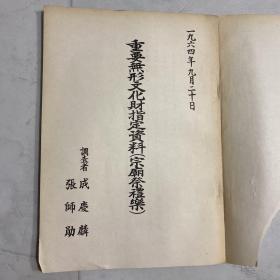 一九六四年九月二十日
重要無形文化財指定資料（宗廟祭禮樂）
調査者 成慶麟
張師勛